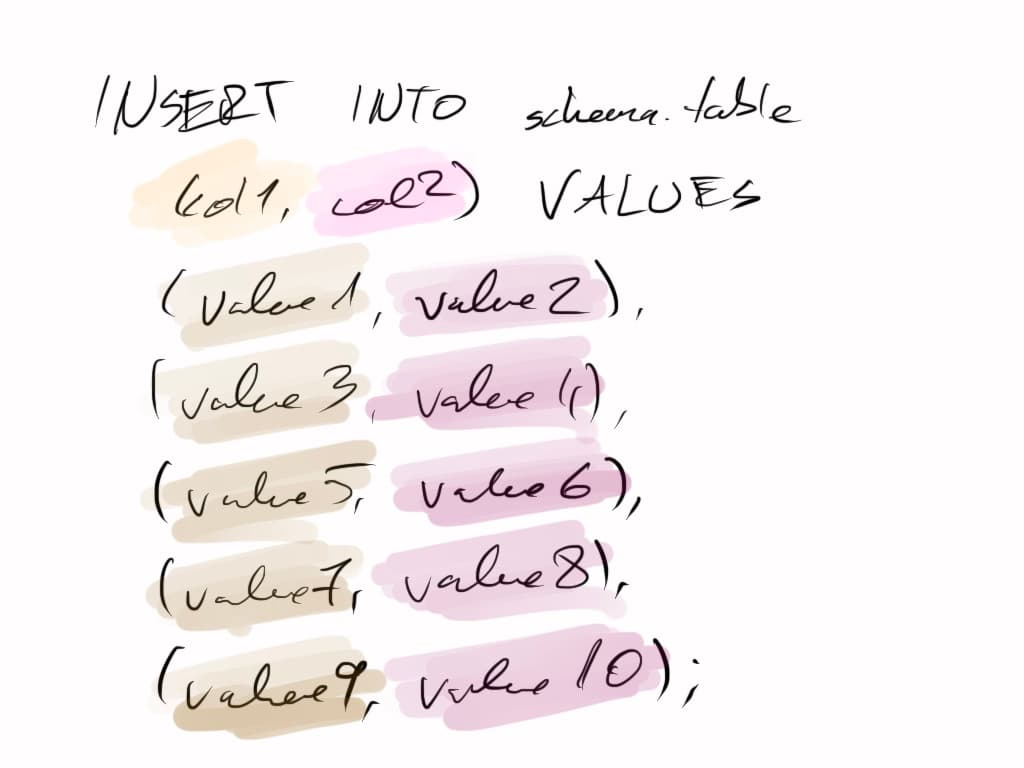 INSERT INTO schema.table
(col1, col2) VALUES
(value1, value2),
(value 3, value 4),
(value5, value6),
(value7, value8),
(value9, value 10);